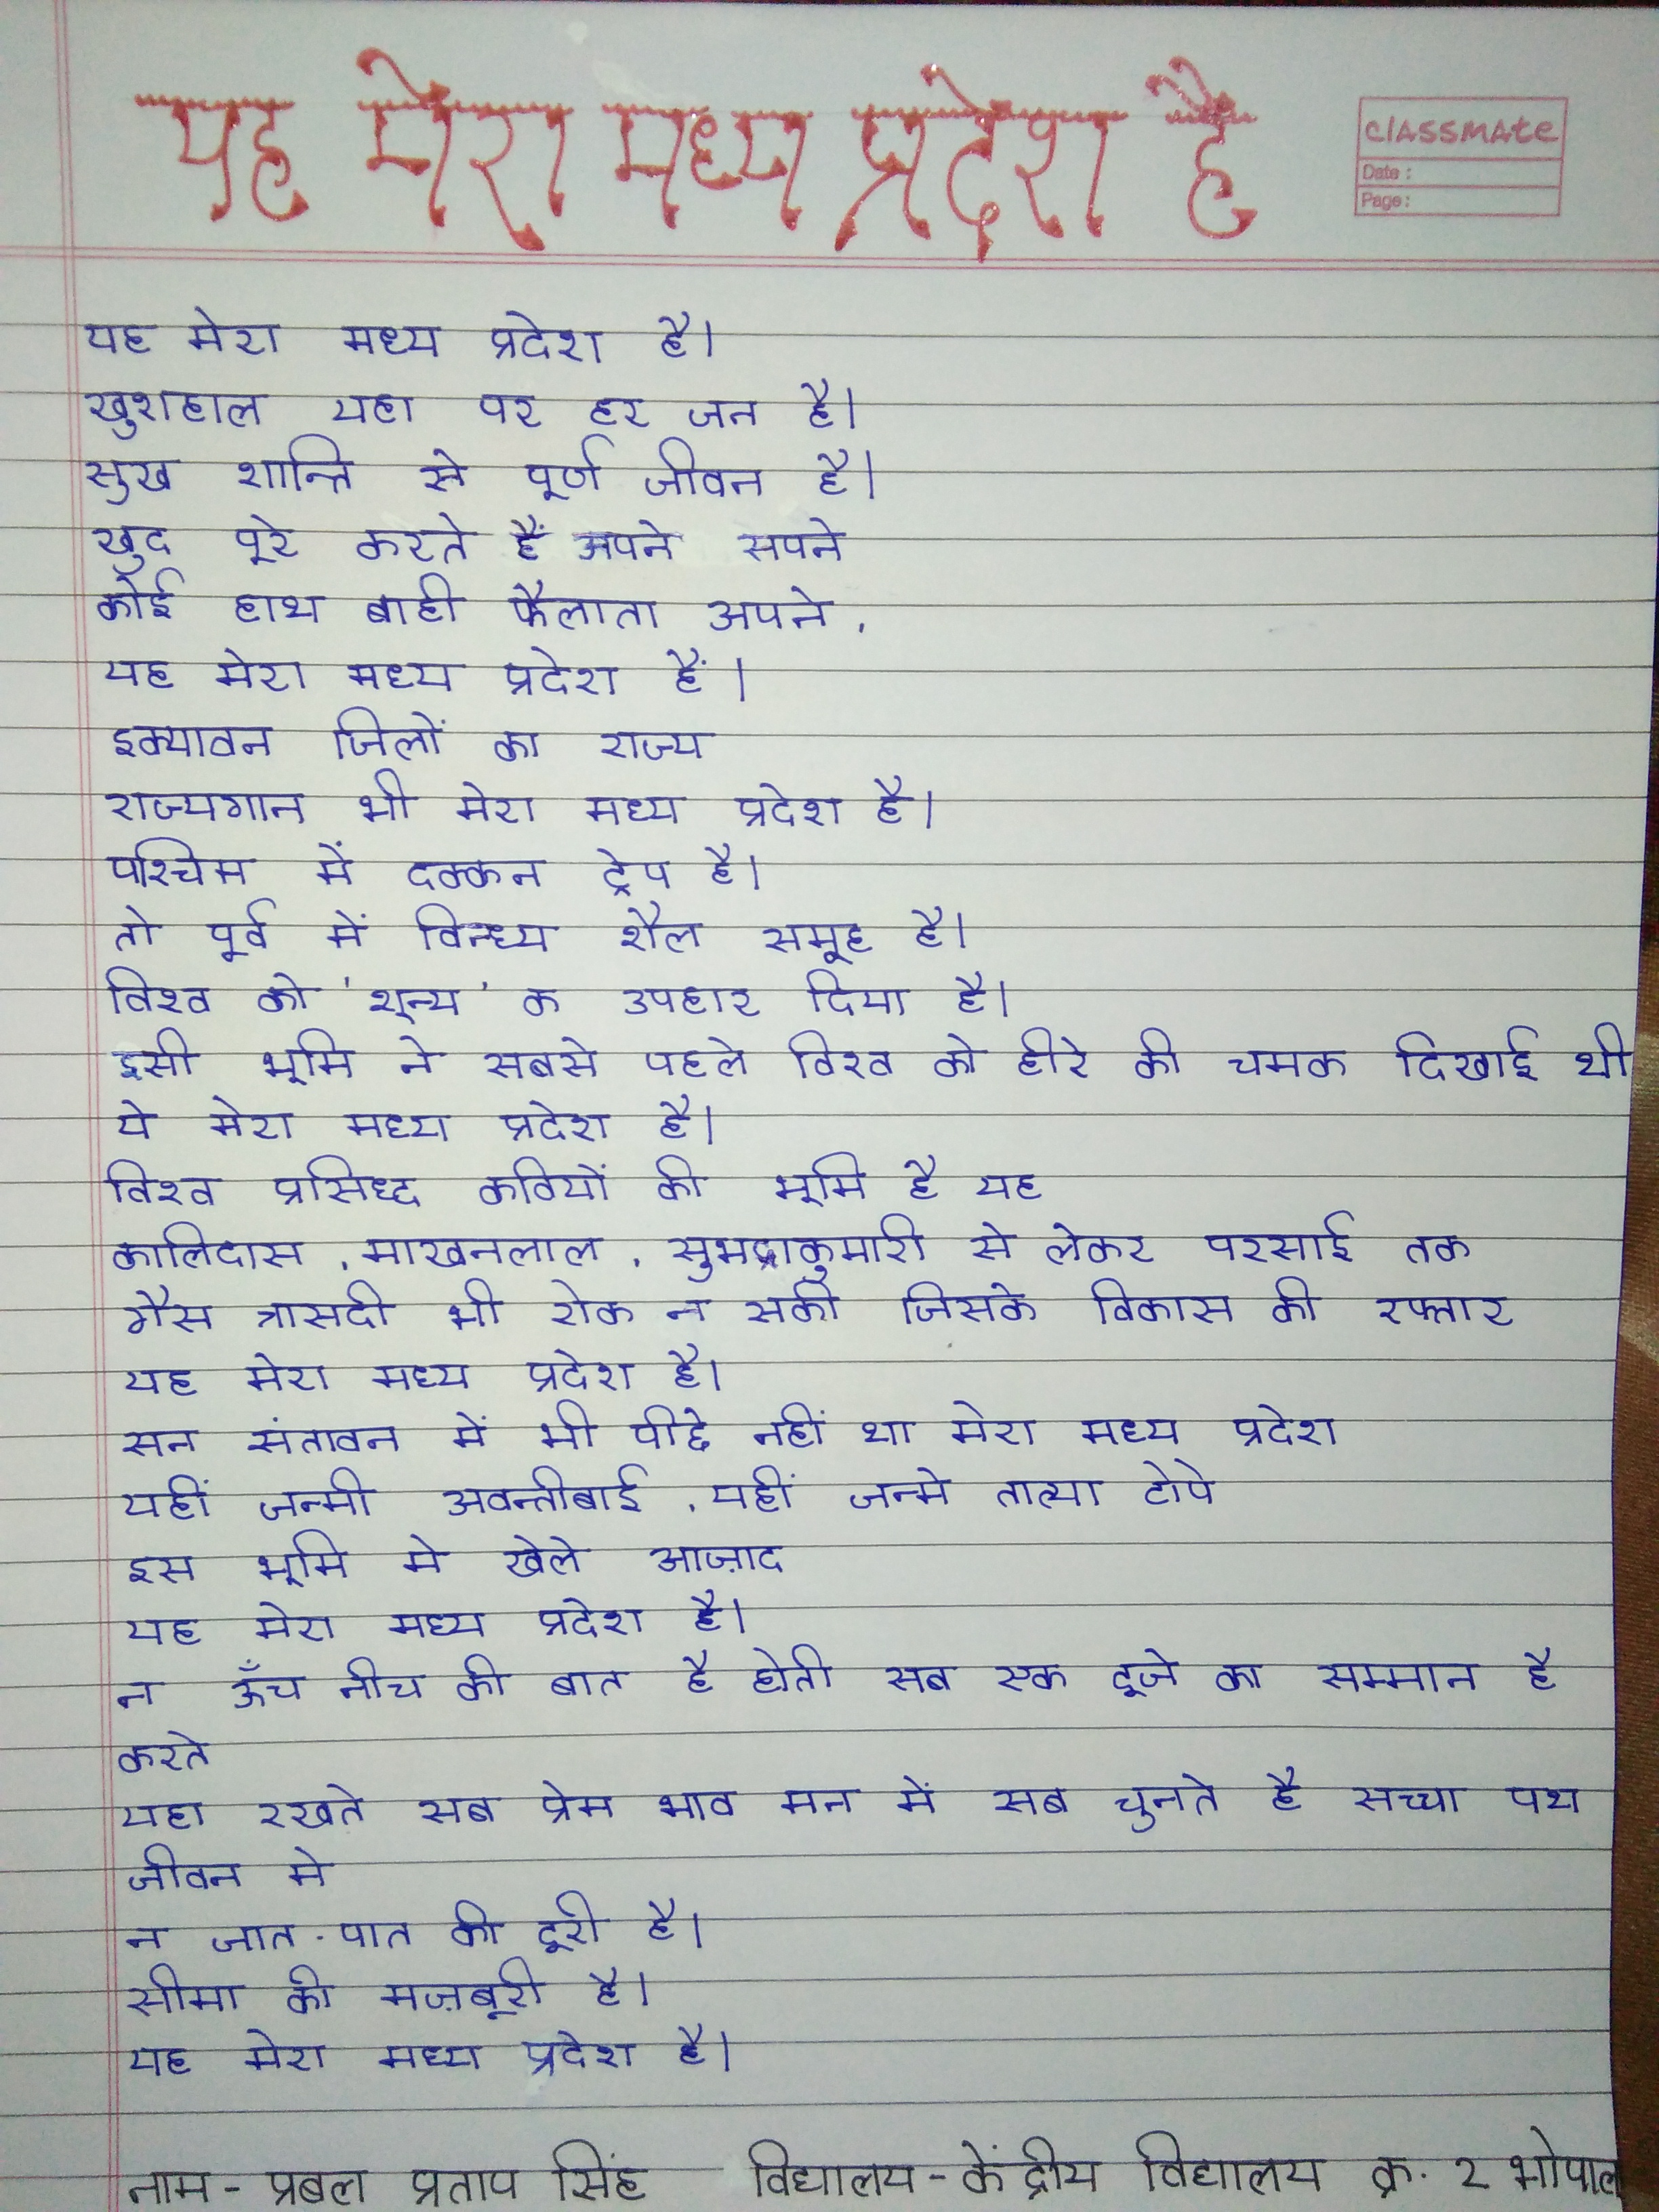 यह मेरा मध्य प्रदेश है
classmate
Date :
Page :
यह मेरा मध्य प्रदेश है।
खुशहाल यहा पर हर जन है।
सुख शान्ति से पूर्ण जीवन है।
खुद पूरे करते हैं अपने सपने
कोई हाथ बाही फैलाता अपने,
यह मेरा मध्य प्रदेश हैं।
इक्यावन जिलों का राज्य
राज्यगान भी मेरा मध्य प्रदेश है।
पश्चिम में दक्कन ट्रेप है।
तो पूर्व में विन्ध्य शैल समूह है।
विश्व को 'शून्य' क उपहार दिया है।
इसी भूमि ने सबसे पहले विश्व को हीरे की चमक दिखाई थी
ये मेरा मध्य प्रदेश है।
विश्व प्रसिध्द कवियों की भूमि है यह
कालिदास, माखनलाल, सुभद्राकुमारी से लेकर परसाई तक
गैस त्रासदी भी रोक न सकी जिसके विकास की रफ्तार
यह मेरा मध्य प्रदेश है।
सन संतावन में भी पीछे नहीं था मेरा मध्य प्रदेश
यहीं जन्मी अवन्तीबाई, यहीं जन्मे तात्या टोपे
इस भूमि मे खेले आज़ाद
यह मेरा मध्य प्रदेश है।
न ऊँच नीच की बात है होती सब एक दूजे का सम्मान है
करते
यहा रखते सब प्रेम भाव मन में सब चुनते है सच्चा पथ
जीवन मे
न जात-पात की दूरी है।
सीमा की मज़बूरी है।
यह मेरा मध्य प्रदेश है।
नाम - प्रबल प्रताप सिंह विद्यालय - केंद्रीय विद्यालय क्र. 2 भोपाल